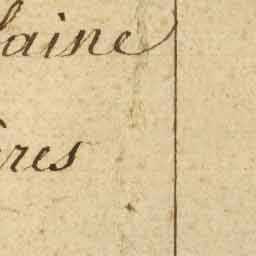 laine
ères